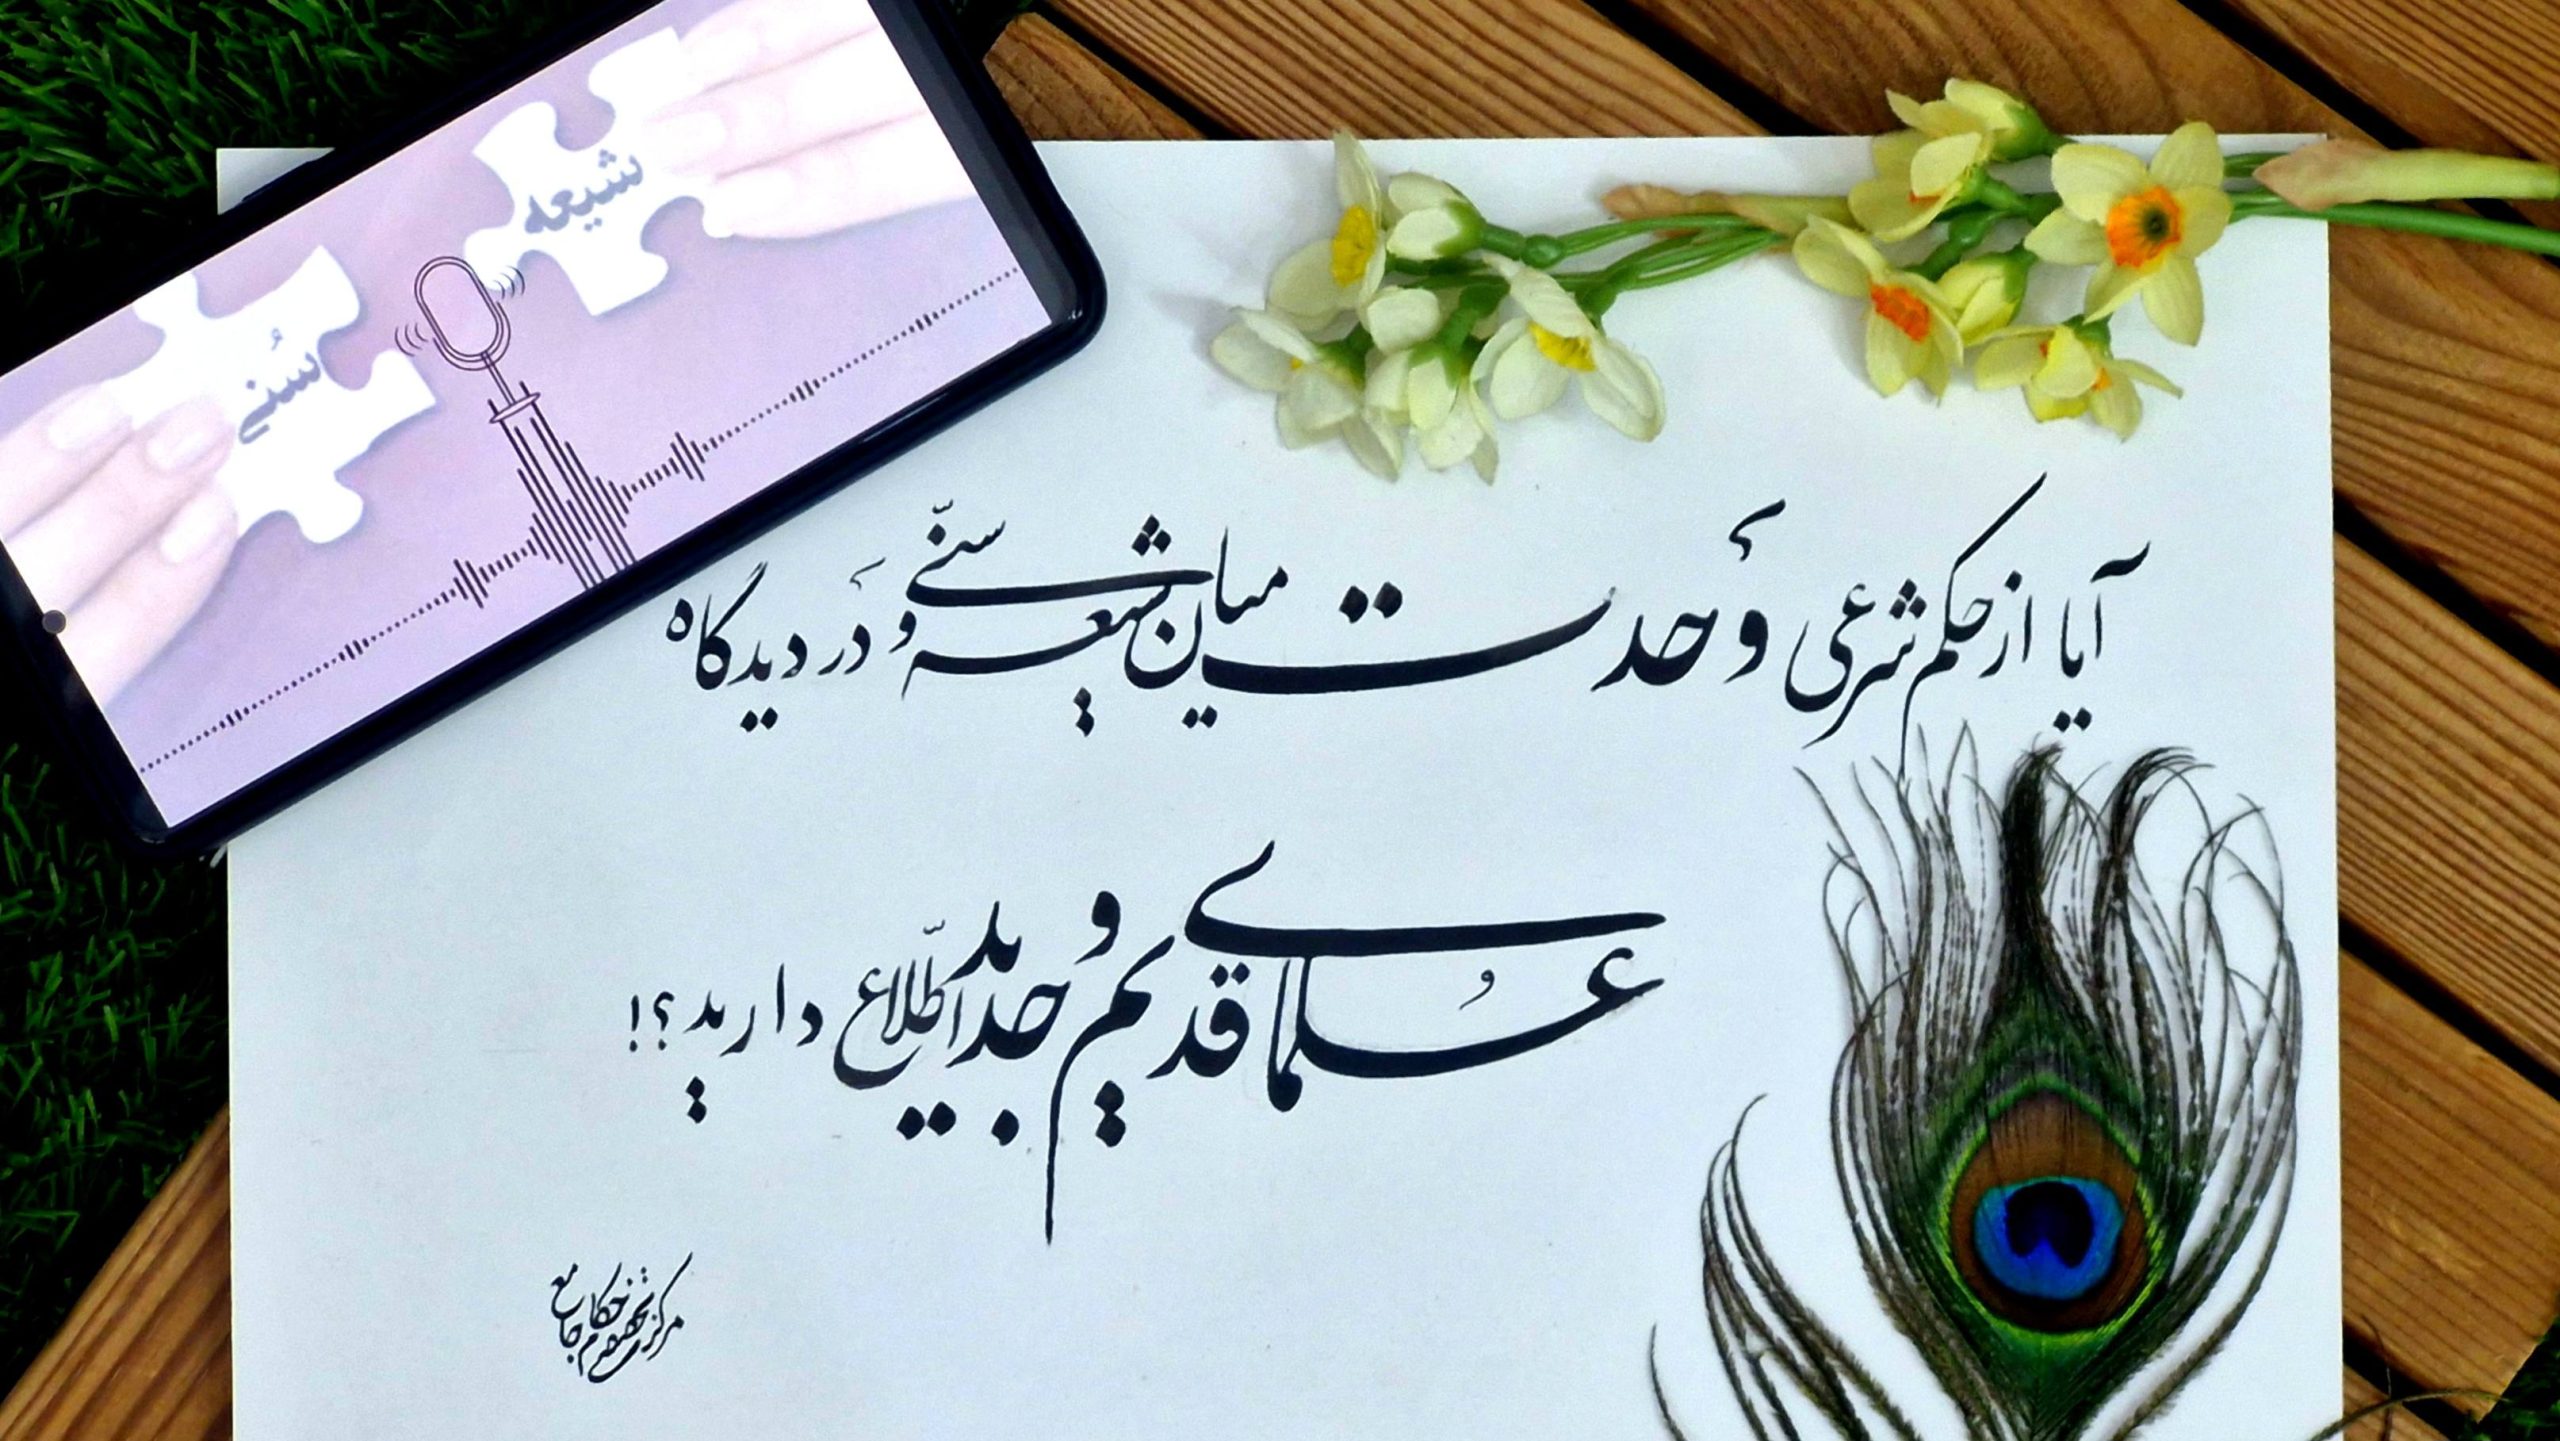 شیعه
سُنی
آیا از حکم شرعی وَحدت میان شیعه و سنّی در دیدگاه
عُلمای قدیم و جدید اطّلاع دارید؟!
مرکز تحقیقات حکام جامع